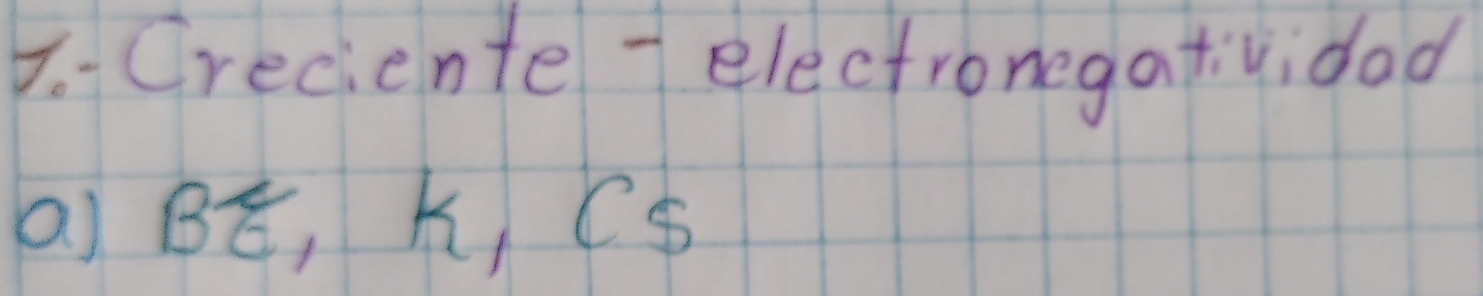 1.- Creciente - electronegatividad
a) Be, K, Cs